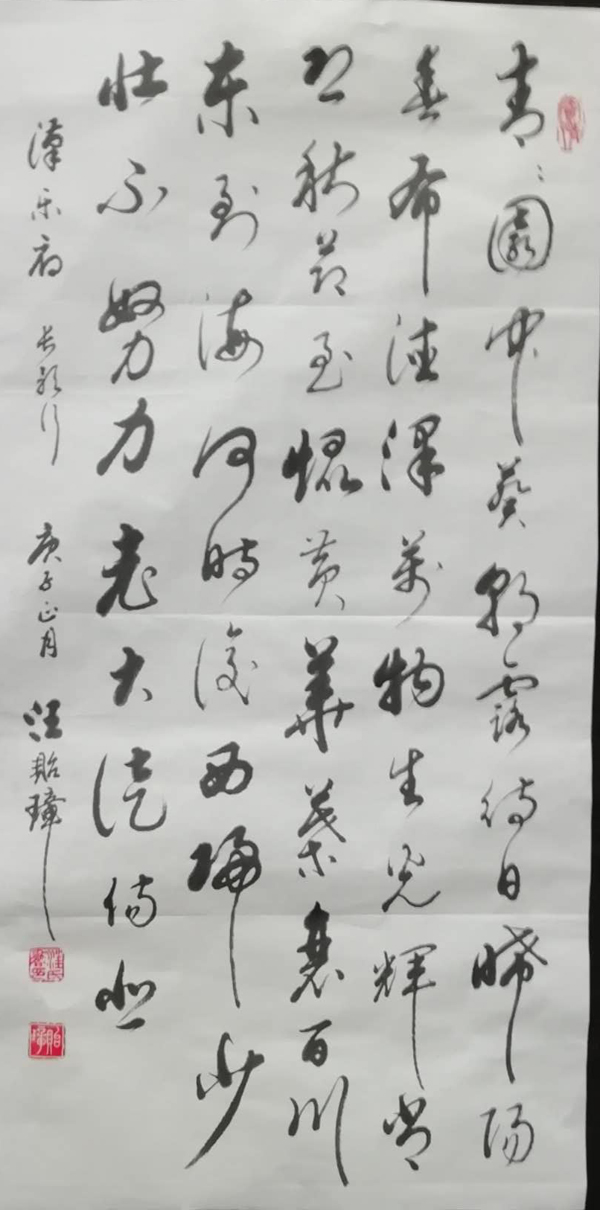 青〻園中葵朝露待日晞陽
春布德澤萬物生光輝常
恐秋節至焜黃華葉衰百川
東到海何時復西歸少
壯不努力老大徒傷悲
漢樂府 長歌行 庚子正月 汪貽璋